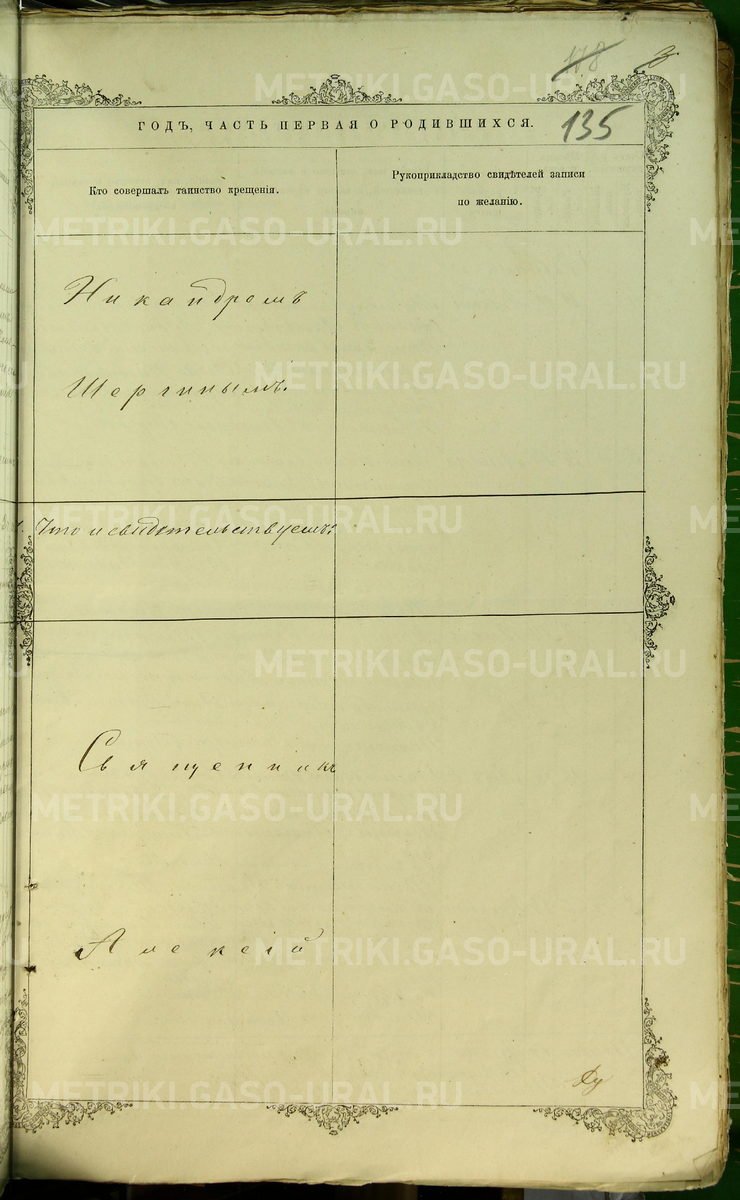 178
3
ГОДЪ, ЧАСТЬ ПЕРВАЯ О РОДИВШИХСЯ.
135
Кто совершалъ таинство крещенія.
Рукоприкладство свидѣтелей записи
по желанію.
Никандромъ
Шергинымъ.
Что и свидѣтельствуемъ:
Священникъ
Алексій
METRIKI.GASO-URAL.RU